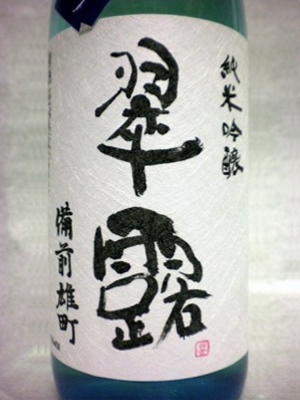 純米吟醸
翠露
備前雄町